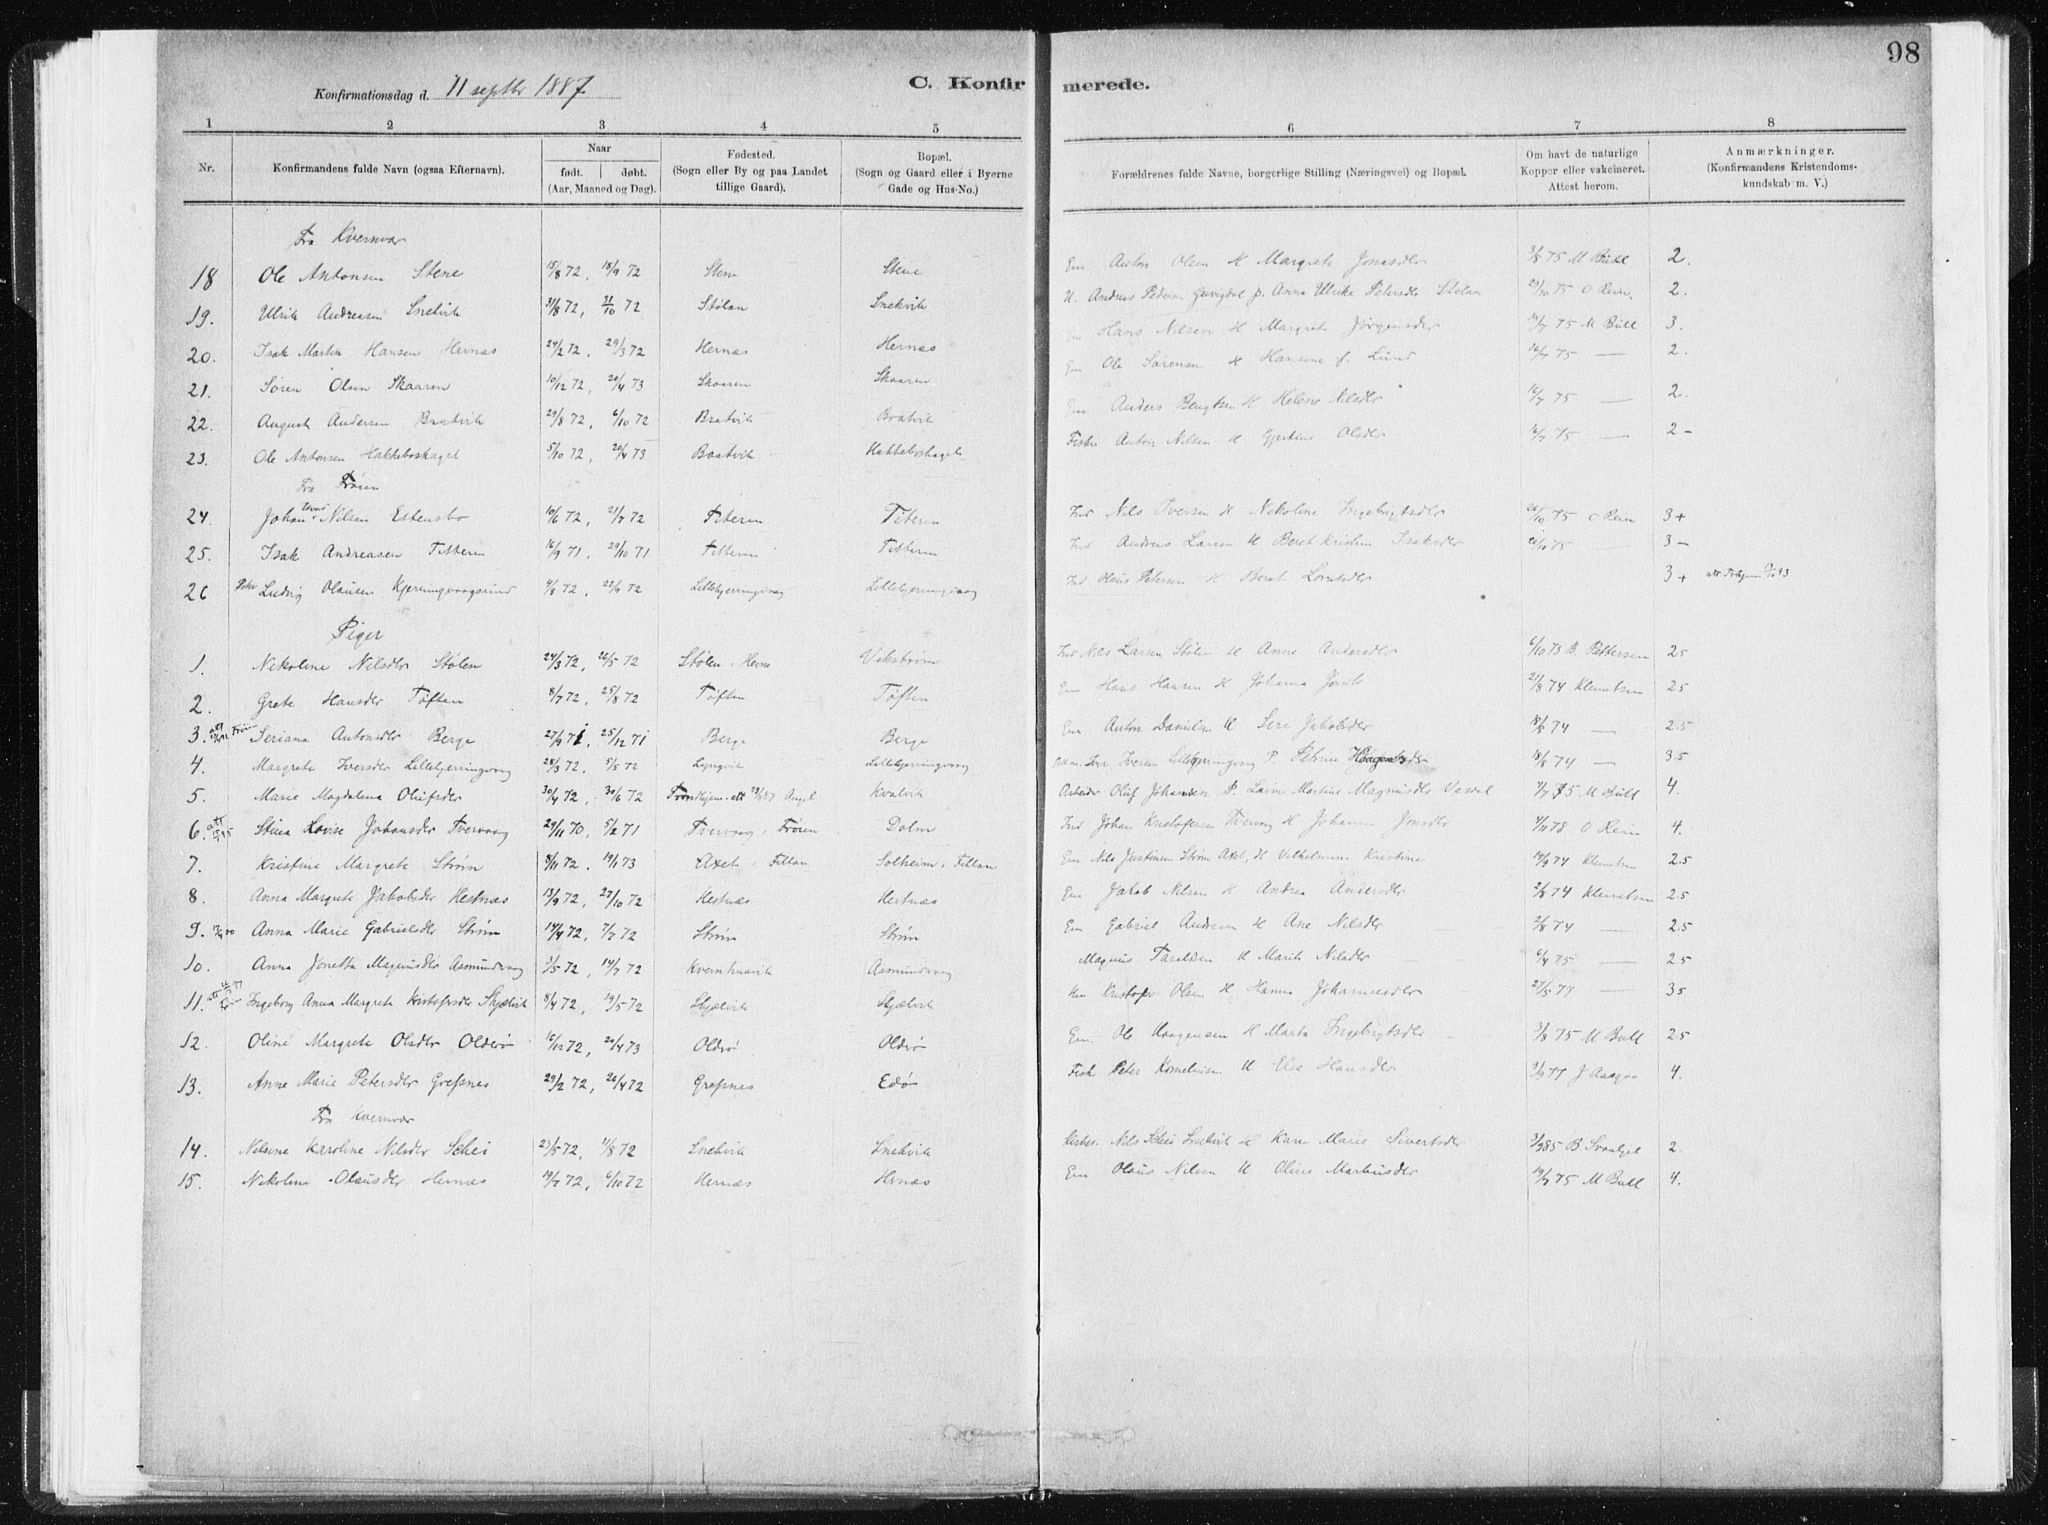 98
Konfirmationsdag d. 11 septbr 1887
C. Konfirmerede.
1 2 3 4 5 6 7 8
Nr. Konfirmandens fulde Navn (ogsaa Efternavn). Naar født. døbt. (Aar, Maaned og Dag). Fødested. (Sogn eller By og paa Landet tillige Gaard). Bopæl. (Sogn og Gaard eller i Byerne Gade og Hus-No.) Forældrenes fulde Navne, borgerlige Stilling (Næringsvei) og Bopæl. Om havt de naturlige Kopper eller vakcineret. Attest herom. Anmærkninger. (Konfirmandens Kristendomskundskab m. V.)
Fra Kvernvær
18 Ole Antonsen Stene 15/8 72, 18/9 72 Stene Stene Em Anton Olsen H Margrete Jonasdtr 3/8 75 M Bull 2.
19. Ulrik Andreasen Snekvik 31/8 72, 31/10 72 Stølan Snekvik U. Andreas Pedersen p. Anna Ulrika Petersdtr Stølan 29/10 75 O Rein 2.
20. Isak Martin Hansen Hernæs 24/2 72, 29/3 72 Hernæs Hernæs Em Hans Nilsen H Margrete Jørgensdtr 19/7 75 M Bull 3.
21. Søren Olsen Skaaren 10/12 72, 20/4 73 Skaaren Skaaren Em Ole Sørensen H Hansine f. Lund 16/7 75 — 2.
22. August Andersen Bratvik 29/8 72, 6/10 72 Bratvik Bratvik Em Anders Bengtsen H Helene Nilsdtr 16/7 75 — 2.
23. Ole Antonsen Hakkeboskaget 5/10 72, 20/4 73 Bratvik Hakkeboskaget Fisker Anton Nilsen H Gjertine Olsdtr 16/7 75 — 2-
Fra Frøien
24. Johan Nilsen Estensbo 10/6 72, 21/7 72 Titeren Titeren Ind Nils Iversen H Nikoline Ingebrigtsdtr 26/10 75 O Rein 3+
25. Isak Andreasen Titteren 16/9 71, 29/10 71 Titteren Titteren Ind Andreas Larsen H Beret Kristine Isaksdtr 26/10 75 — 3-
26 Peter Ludvig Olausen Kjerringvaagsund 4/8 72, 22/9 72 Lillekjerringvaag Lillekjerringvaag Ind Olaus Petersen H Beret Lorntsdtr 3+
Piger
1. Nikoline Nilsdtr Stølen 24/3 72, 26/5 72 Stølen, Hevne Vikstrøm Ind Nils Larsen Stølen H Anne Andersdtr 6/10 73 B. Pettersen 25
2. Grete Hansdtr Tøften 8/7 72, 25/8 72 Tøften Tøften Em Hans Hansen H Johanna Jonsdtr 21/8 74 Klemetsen 25
3. Seriana Antonsdtr Berge 27/9 71, 25/12 71 Berge Berge Em Anton Danielsen H Seri Jakobsdtr 18/6 74 — 2.5
4. Margrete Iversdtr Lillekjerringvaag 28/3 72, 5/5 72 Lyngvik Lillekjerringvaag Iver Iversen Lillekjerringvaag P. Petrine Haagensdtr 18/6 74 — 35
5. Marie Magdalena Olufsdtr 30/4 72, 30/6 72 Trondhjem Kvalvik Arbeider Oluf Johansen P. Martine Magnusdtr 75 M Bull 4.
6. Stina Lovise Johansdtr Tvervaag 29/11 70, 5/2 71 Tvervaag, Frøien Dolm Ind Johan Kristofersen Tvervaag H Johanna Jonsdtr 4/11 78 O Rein 4.
7. Kristine Margrete Strøm 8/11 72, 19/1 73 Axet, Fillan Solheim, Fillan Em Nils Justinsen Strøm Axet, H Vilhelmine Kristine 19/9 74 Klemetsen 2.5
8. Anna Margrete Jakobsdtr Hestnæs 13/9 72, 27/10 72 Hestnæs Hestnæs Em Jakob Nilsen H Andrea Andersdtr 2/8 74 Klemetsen 2.5
9. Anna Marie Gabrielsdtr Strøm 14/4 72, 7/7 72 Strøm Strøm Em Gabriel Andresen H Ane Nilsdtr 2/8 74 — 2.5
10. Anna Jonetta Magnusdtr Asmundvaag 3/5 72, 14/7 72 Kvernhusvik Asmundvaag Magnus Taraldsen H Marit Nilsdtr 6/4 75 — 2.5
11. Ingeborg Anna Margrete Kristofersdtr Skjælvik 8/4 72, 19/5 72 Skjælvik Skjælvik Em Kristofer Olsen H Hanna Johannesdtr 27/5 77 — 35
12. Oline Margrete Olsdtr Olderø 16/12 72, 20/4 73 Olderø Olderø Em. Ole Haagensen H Marta Ingebrigtsdtr 3/8 75 M Bull 25
13. Anne Marie Petersdtr Grefsnes 29/2 72, 26/4 72 Grefsnes Edø Fisk Peter Kornelius H Else Hansdtr 9/9 77 J Aasgaa 4.
Fra Kvernvær
14. Nilsine Karoline Nilsdtr Schei 23/5 72, 11/8 72 Snekvik Snekvik Nils Schei Snekvik H Karen Marie Sivertsdtr 3/9 85 B. Svanhjel 2.
15. Nikoline Olausdtr Hernæs 19/7 72, 6/10 72 Hernæs Hernæs Em Olaus Nilsen H Oline Markusdtr 19/7 75 M Bull 4.